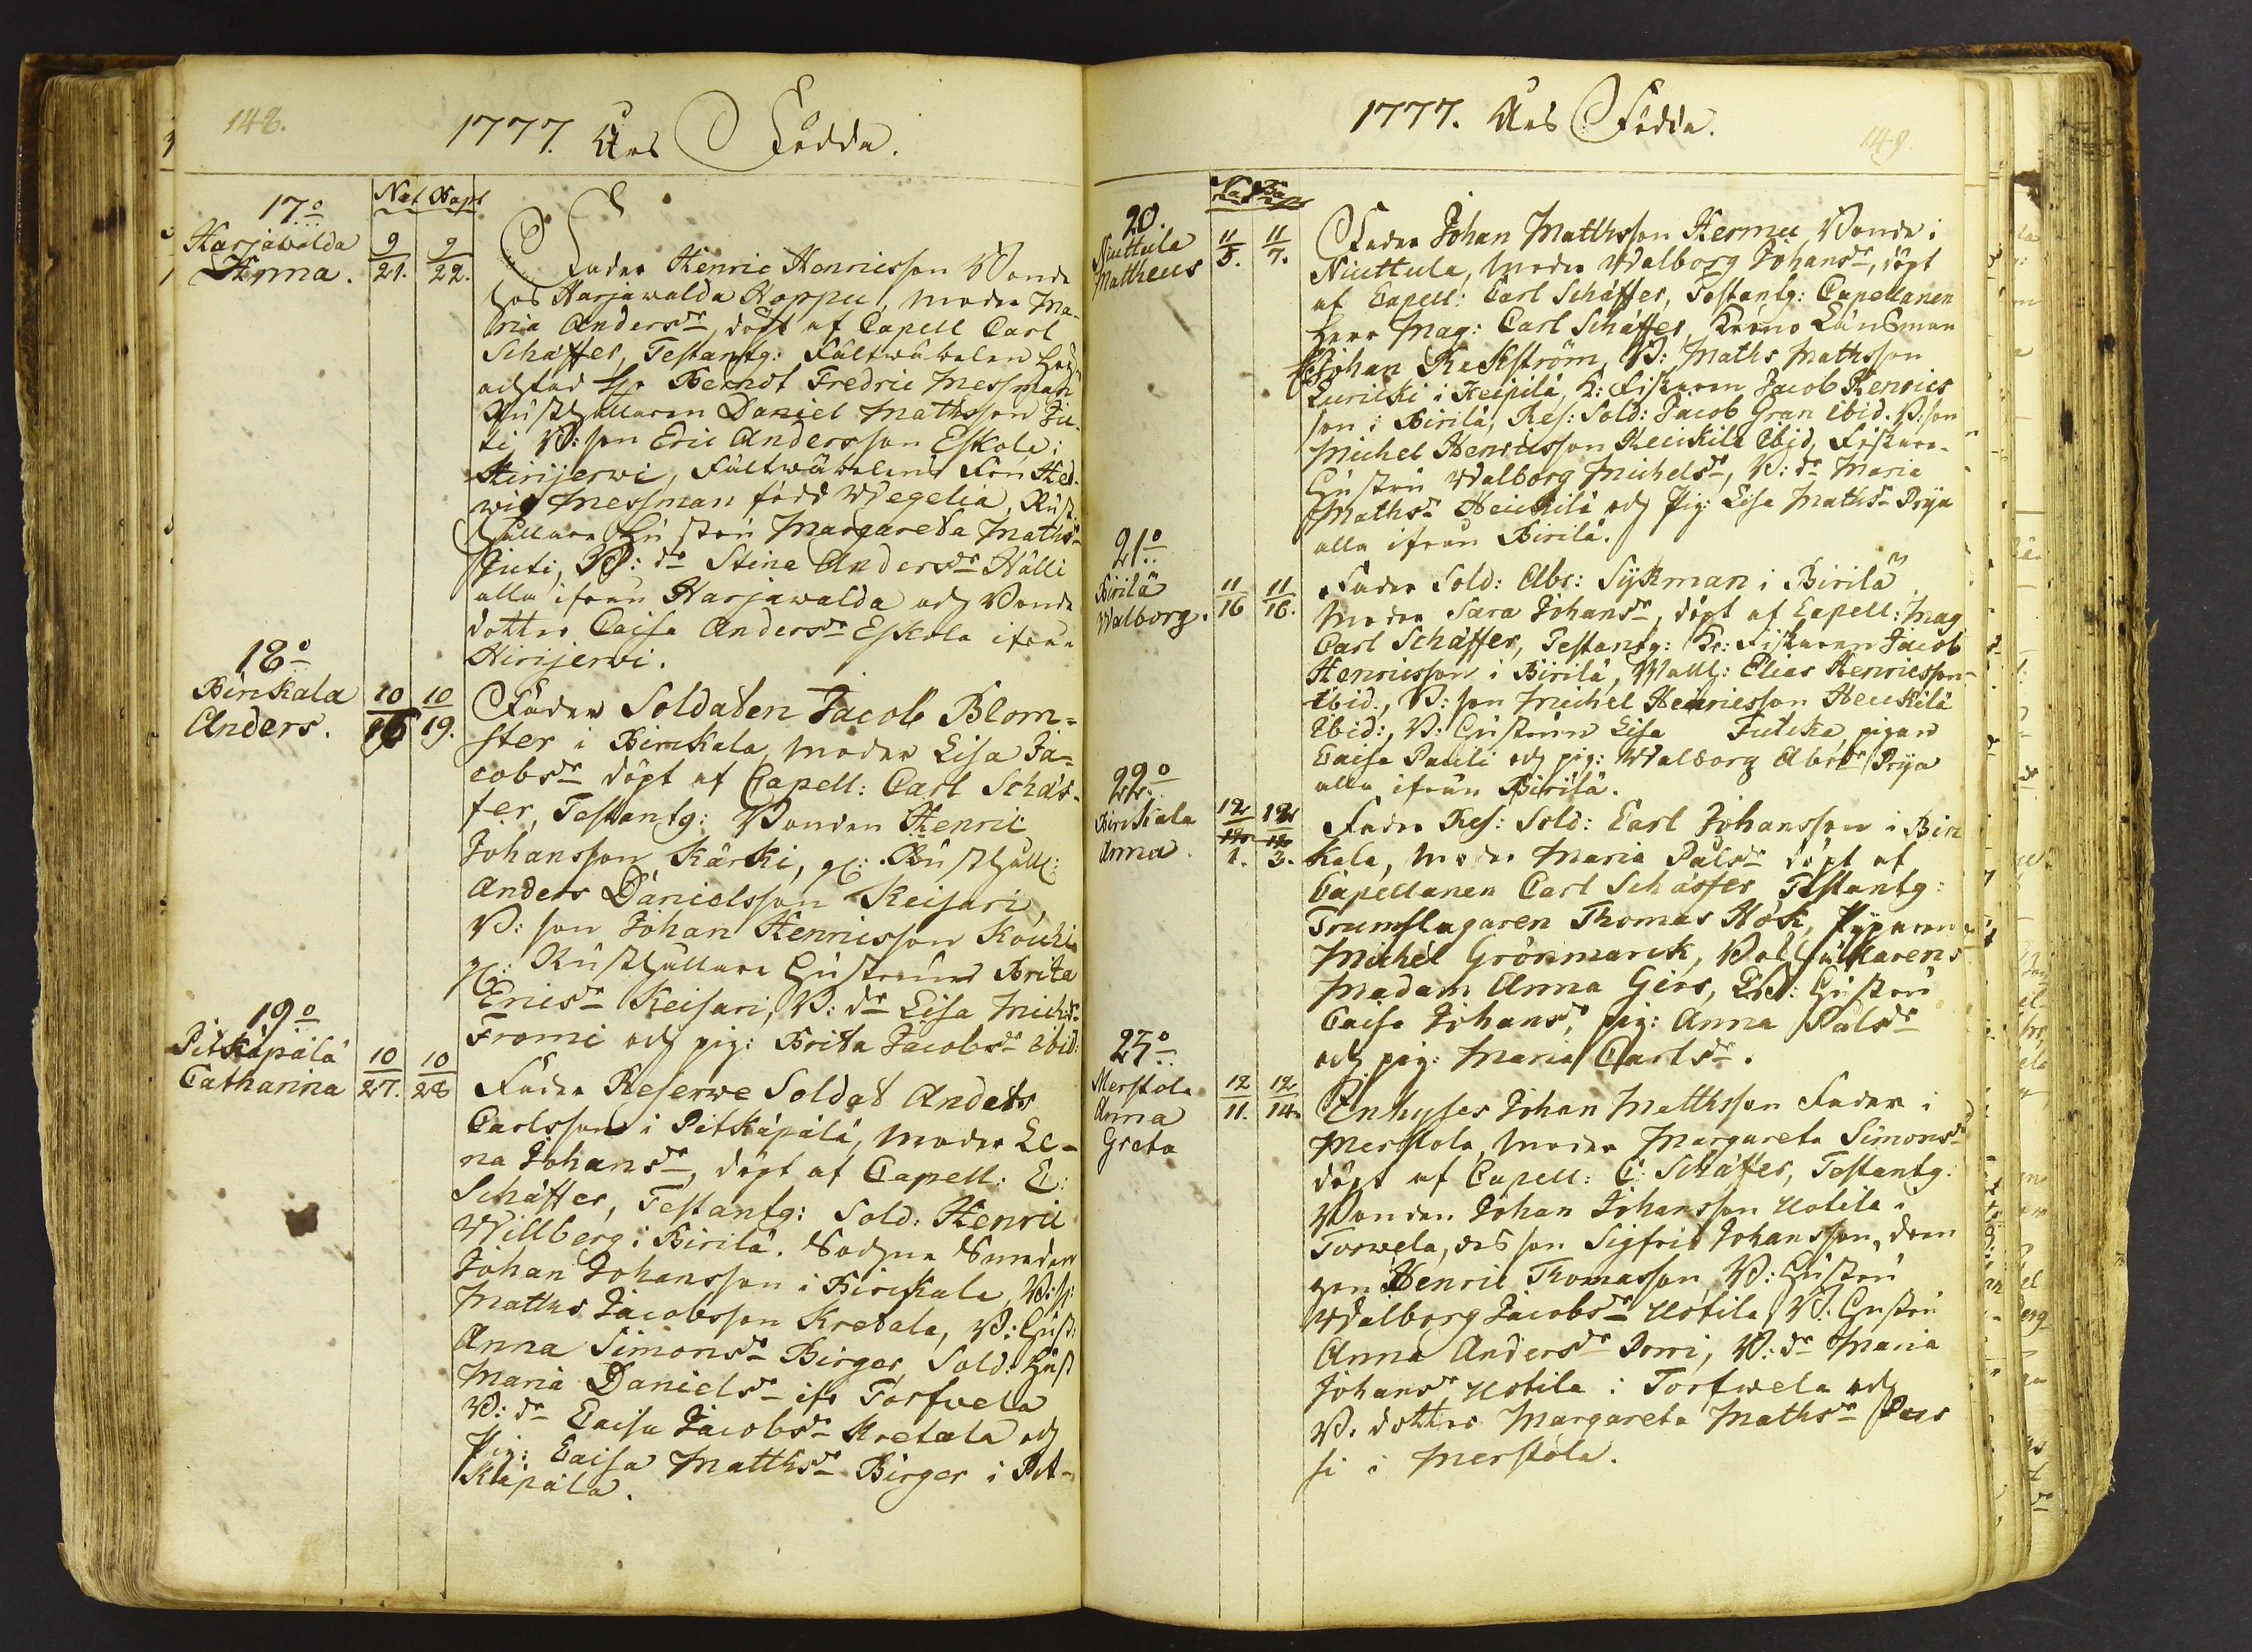 148.
1777. Års Födda.
Nat. Bapt
17:o
Harjawalda
Anna.
9/21.
9/22.
Fader Henric Henricsson Bonde
hos Harjawalda Hoppu, moder Ma-
ria Andersdr, döpt af Capell Carl
Schäffer, Testantg: Fältwäbelen
Berndt Fredric Messman
Rusthållaren Daniel Mathsson Ju-
ti, B: son Eric Andersson Eskola i
Hirijerwi, Fältwäbelens Fru Hed-
wig Messman född Wegelia, Rust-
hållare Hustru Margareta Mathsdr
Juti, B: dr Stina Andersdr Hälli
alla ifrån Harjawalda och Bonde
dotter Caisa Andersdr Eskola ifrån
Hirijerwi.
18:o
Birckala
Anders.
10/16
10/19.
Fader Soldaten Jacob Blom-
ster i Birckala, moder Lisa Ja-
cobsdr döpt af Capell: Carl Schäf-
fer, Testantg: Bonden Henric
Johansson Kärki, gl: Rusthåll:
Anders Danielsson Keisari,
B: son Johan Henricsson Kouki
gl: Rusthållare Hustruns Brita
Ericsdr Keisari, B: dr Lisa Michdr
Fromi och pig: Brita Jacobsdr ibid:
19:o
Pitkäpälä
Catharina
10/27.
10/28
Fader Reserwe Soldat Anders
Carlsson i Pitkäpälä, moder Le-
na Johansdr, döpt af Capell: C:
Schäffer, Testantg: Sold: Henric
Willberg i Birilä. Sockne
Johan Johansson i Birckala, B: s:
Matths Jacobsson Kretala, B: Hust:
Anna Simonsdr Birger Sold: Hust
Maria Danielsdr ifr Torfwela
B: dr Caisa Jacobsdr Kretala och
Pig: Caisa Matthsdr Birger i Pit-
käpälä.
1777. Års Födda.
149.
Nat Bapt
20.
Niuttula
Mattheus
11/5.
11/7.
Fader Johan Matthsson Hermu Bonde i
Niuttula, moder Walborg Johansdr, döpt
af Capell: Carl Schäffer, Testantg: Capellanen
Herr Mag: Carl Schäffer, Krono Länsman
Johan Reckström, B: Maths Mathsson
Luricki i Heipilä, K: Fiskaren Jacob Henrics
son i Birilä, Res: Sold: Jacob Gran ibid. B: son
Michel Henricsson Heickilä ibid, Fiskare-
Hustru Walborg Michelsdr, B: dr Maria
Mathsdr Heickilä och Pig: Lisa Mathsdr Prya
alla ifrån Birilä.
21:o
Birilä
Walborg.
11/16
11/16.
Fader Sold: Abr: Sykman i Birilä
Moder Sara Johansdr, döpt af Capell: Mag
Carl Schäffer, Testantg: Kr: Fiskaren Jacob
Henricsson i Birilä, Wallf: Elias Henricsson
ibid., B: son Michel Henricsson Heickilä
ibid:, B: Hustrun Lisa Futika pigan
Caisa Pauli och pig: Walborg Abrdr Prya
alla ifrån Birilä.
22:o
Birckala
Anna.
12/1.
12/3.
Fader Res: Sold: Carl Johansson i Birc
kala, Moder Maria Pålsdr döpt af
Capellanen Carl Schäffer Testantg:
Trumslagaren Thomas Hök, Pyparen
Michel Grönmarck,
Madam Anna Gers, Hustru
Caisa Johansdr, pig: Anna Pålsdr
och pig: Maria Carlsdr.
23:o
Merstola
Anna
Greta
12/11.
12/14.
Enhyses Johan Matthsson Fader i
Merstola, moder Margareta Simonsdr
döpt af Capell: C: Schäffer, Testantg:
Bonden Johan Johansson Uotila i
Torwela, des son Sigfrid Johansson, dren
gen Henric Thomasson, B: Hustru
Walborg Jacobsdr Uotila, B: Hustru
Anna Andersdr Porri, B: dr Maria
Johansdr Uotila i Torfwela och
B. dotter Margareta Mathsdr Pas
si i Merstola.